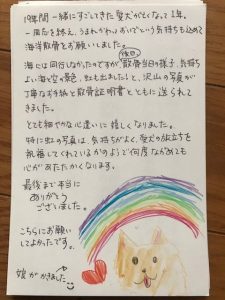 19年間一緒にすごしてきた愛犬が亡くなって1年。
一周忌を終え、うまれかわっておいでという気持ちも込めて
海洋散骨をお願いしました。
海には同行しなかったのですが、後日「散骨当日の様子、気持ち
よい海と空の景色、虹も出ました!と、沢山の写真が
丁寧なお手紙と散骨証明書とともに送られて
きました。
とても細やかな心遣いに嬉しくなりました。
特に虹の写真は、気持ちがよく、愛犬の旅立ちを
祝福してくれているかのようで何度ながめても
心があたたかくなります。
最後まで本当に
ありがとう
ございました。
こちらにお願い
してよかったです。
娘がかきました